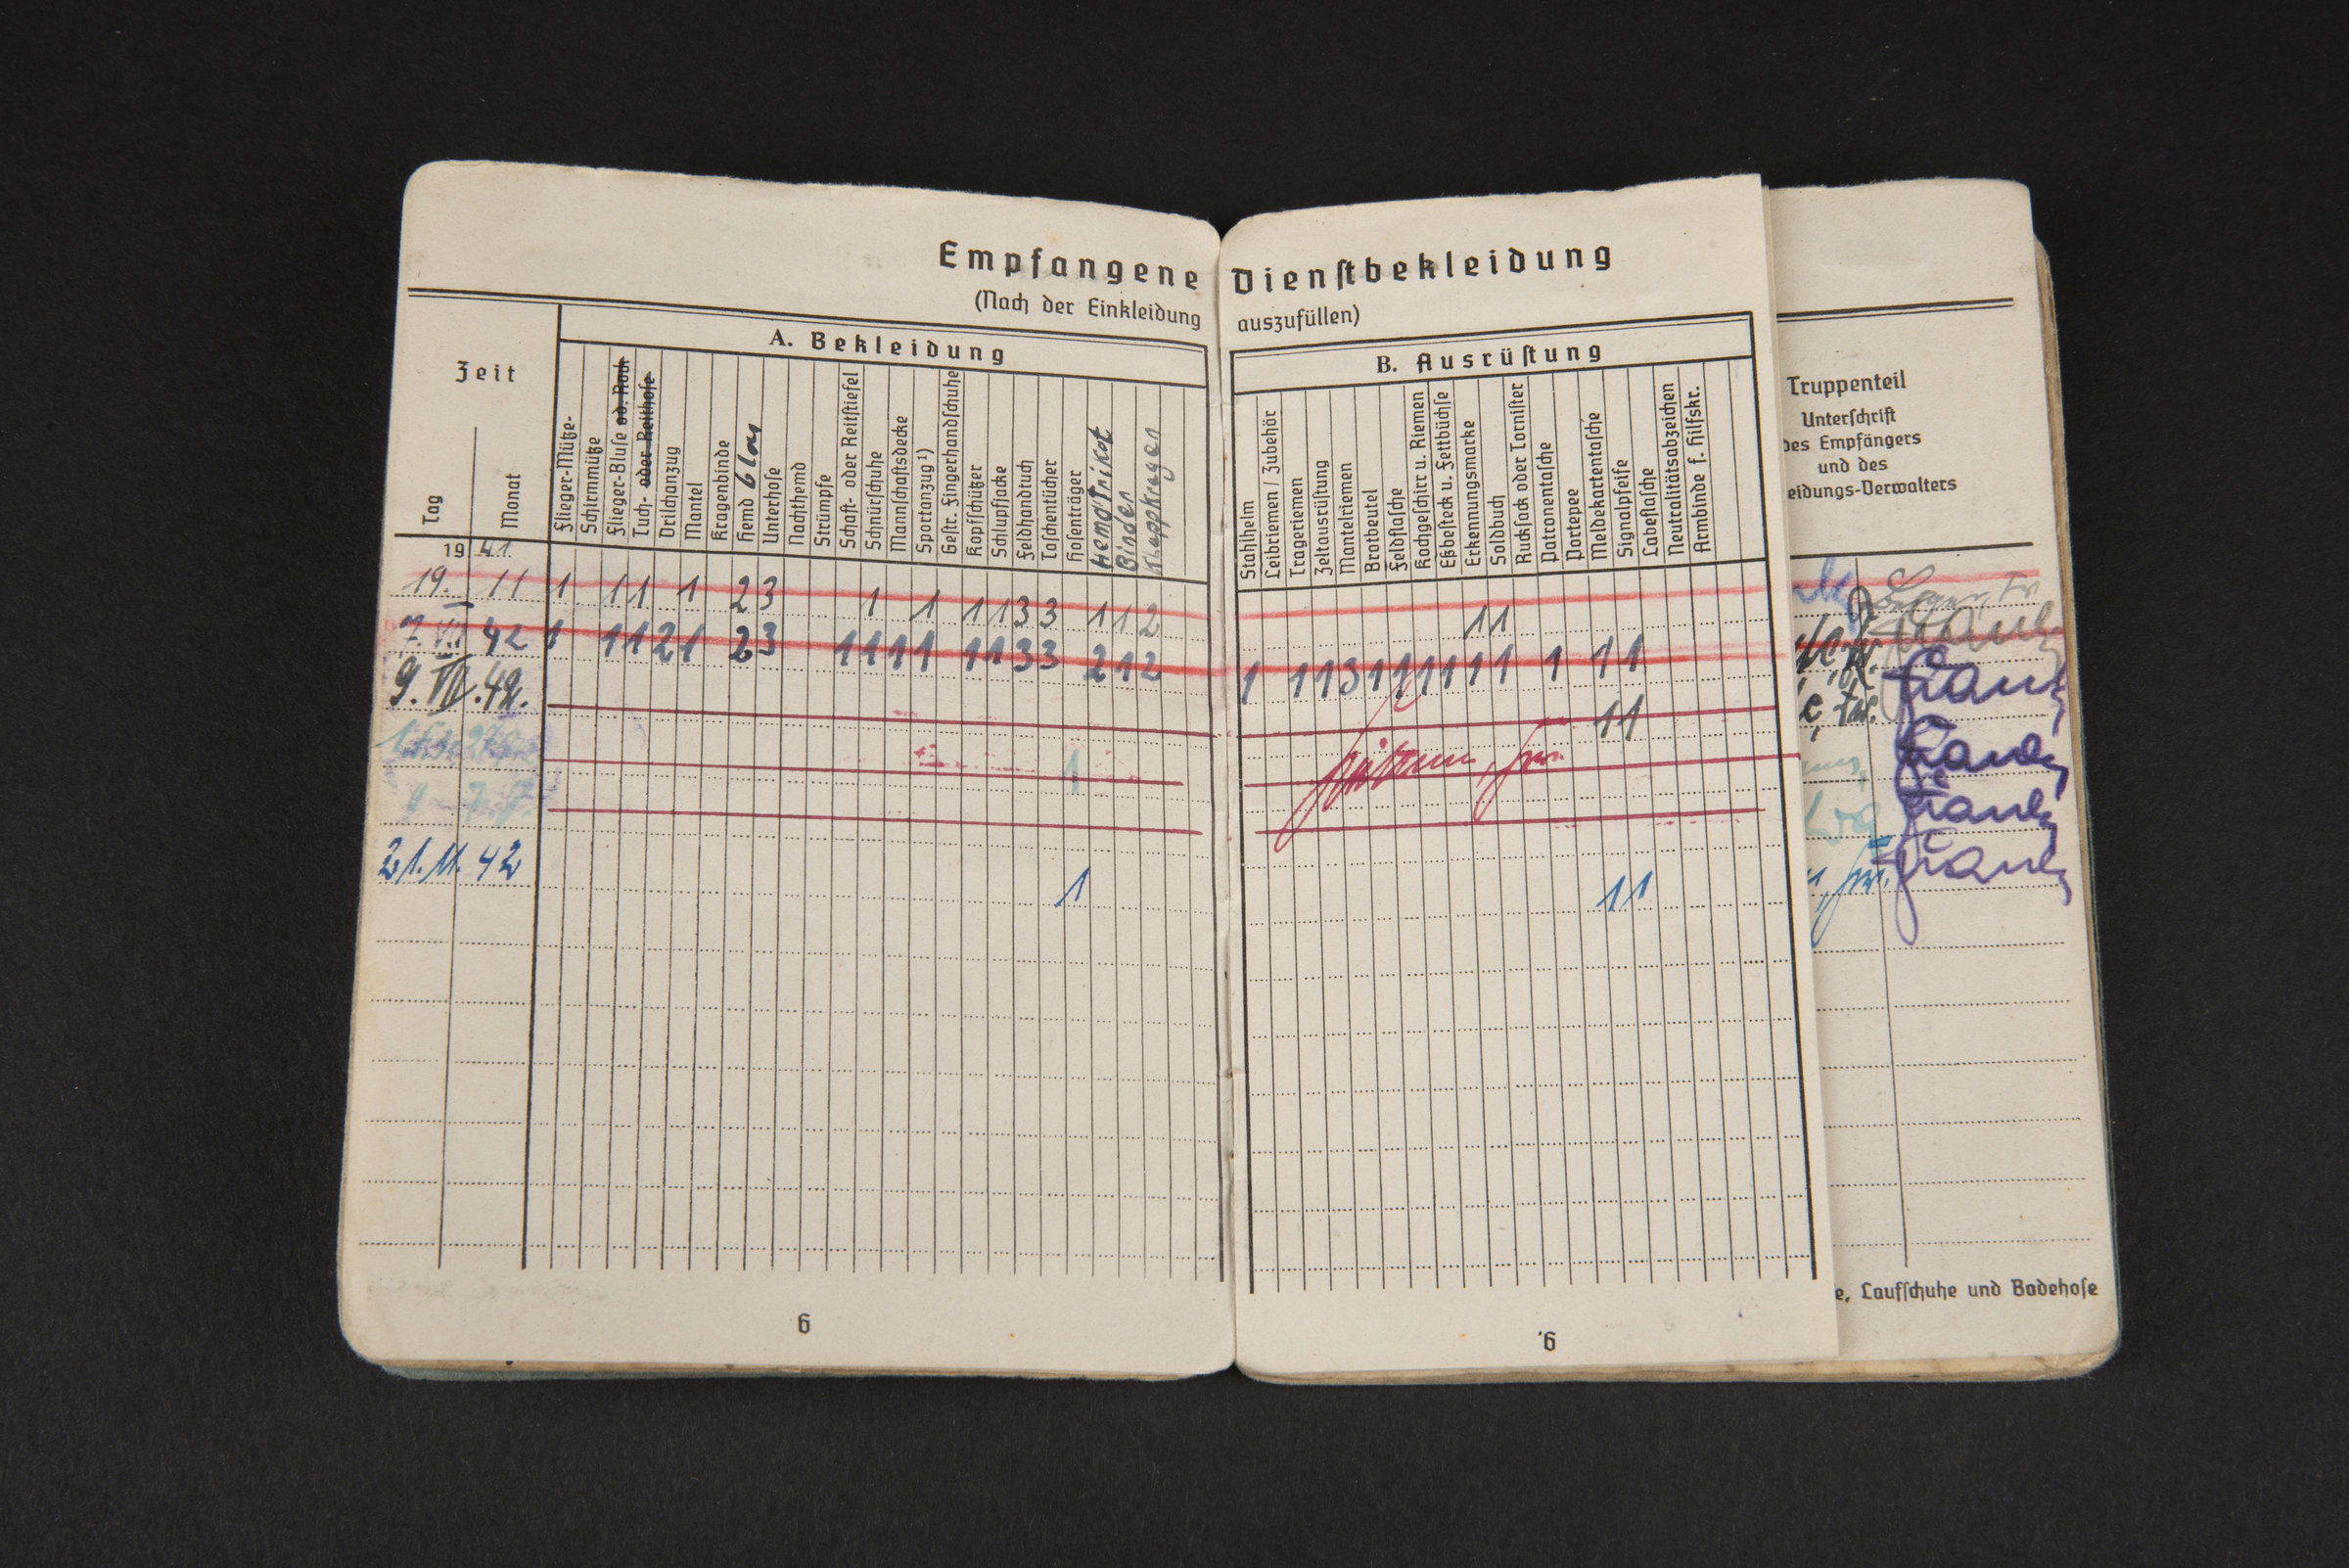 Empfangene Dienstbekleidung
(Nach der Einkleidung auszufüllen)
Zeit
Tag
Monat
A. Bekleidung
Flieger-Mütze-
Schirmmütze
Flieger-Bluse od. Rock
Tuch- oder Reithose
Drilchanzug
Mantel
Kragenbinde
Hemd blau
Unterhose
Nachthemd
Strümpfe
Schaft- oder Reitstiefel
Schnürschuhe
Mannschaftsdecke
Sportanzug¹)
Gestr. Fingerhandschuhe
Kopfschützer
Schlupfjacke
Feldhandtuch
Taschentücher
Hosenträger
Hemd Trikot
Binder
Kleppkragen
B. Ausrüstung
Stahlhelm
Leibriemen / Zubehör
Trageriemen
Zeltausrüstung
Mantelriemen
Brotbeutel
Feldflasche
Kochgeschirr u. Riemen
Eßbesteck u. Fettbüchse
Erkennungsmarke
Soldbuch
Rucksack oder Tornister
Patronentasche
Portepee
Meldekartentasche
Signalpfeife
Labeflasche
Neutralitätsabzeichen
Armbinde f. Hilfskr.
Truppenteil
Unterschrift
des Empfängers
und des
eidungs-Verwalters
19 41
19. 11 1 1 1 1 2 3 1 1 1 1 3 3 1 1 2 1 1
7. VII 42 1 1 1 2 1 2 3 1 1 1 1 1 1 3 3 2 1 2 1 1 1 3 1 1 1 1 1 1 1 1 1
9. VII. 42. 1 1
1
21. 11. 42 1 1 1
6
6
e, Laufschuhe und Badehose